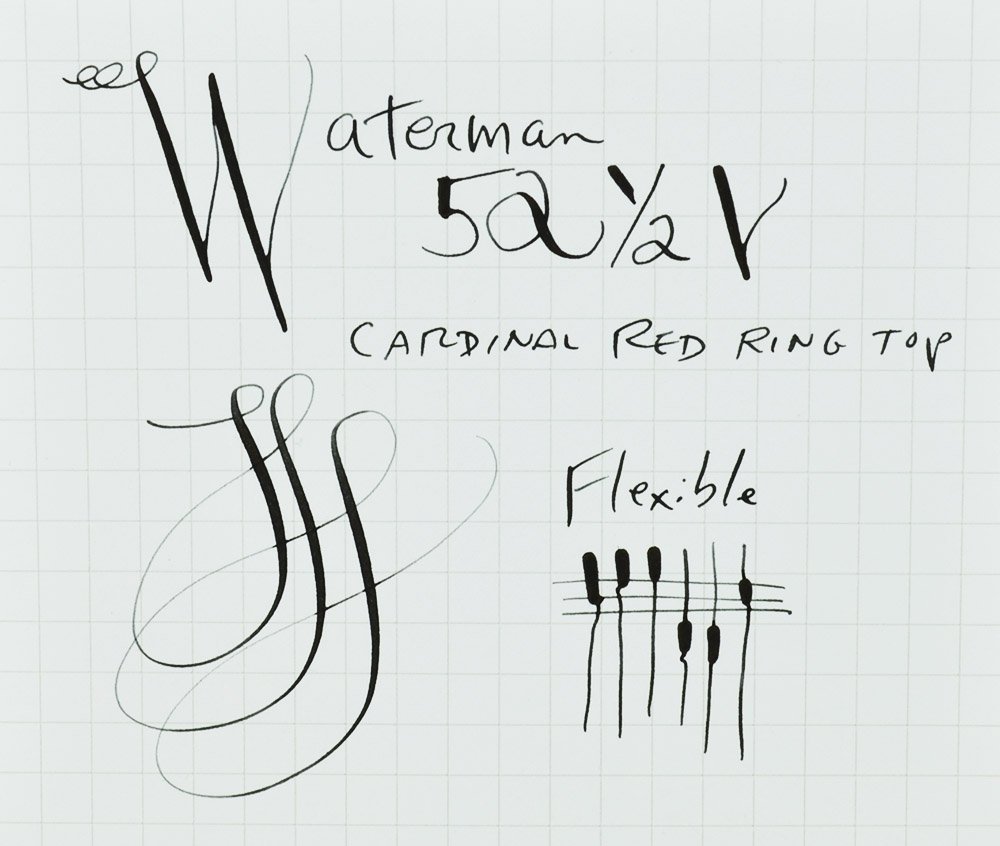 Waterman
52 1/2 V
CARDINAL RED RING TOP
Flexible